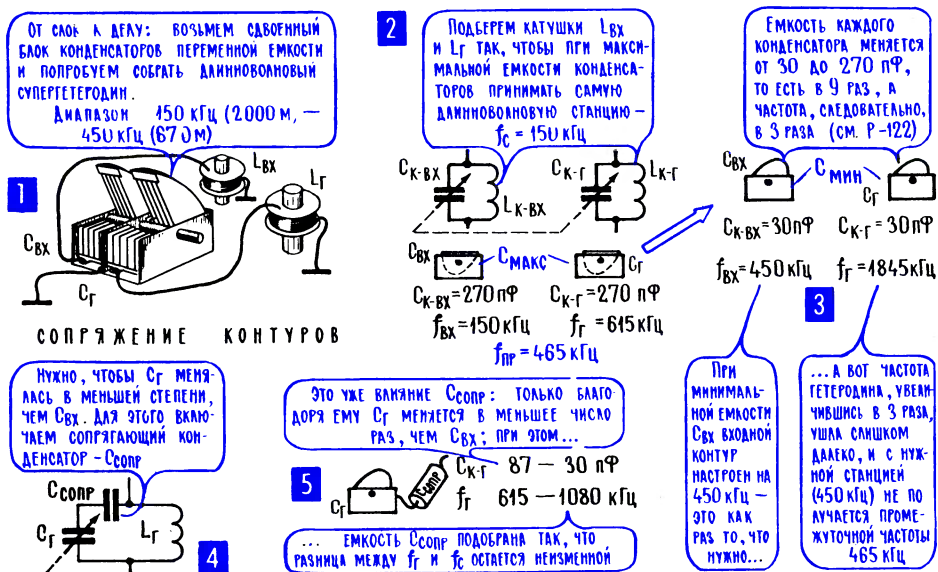 ОТ СЛОВ К ДЕЛУ: ВОЗЬМЕМ СДВОЕННЫЙ
БЛОК КОНДЕНСАТОРОВ ПЕРЕМЕННОЙ ЕМКОСТИ
И ПОПРОБУЕМ СОБРАТЬ ДЛИННОВОЛНОВЫЙ
СУПЕРГЕТЕРОДИН.
ДИАПАЗОН 150 кГц (2000 м, —
450 кГц (670 м)
1
Lвх
Lг
Cвх
Cг
СОПРЯЖЕНИЕ КОНТУРОВ
2
ПОДБЕРЕМ КАТУШКИ Lвх
И Lг ТАК, ЧТОБЫ ПРИ МАКСИ-
МАЛЬНОЙ ЕМКОСТИ КОНДЕНСА-
ТОРОВ ПРИНИМАТЬ САМУЮ
ДЛИННОВОЛНОВУЮ СТАНЦИЮ—
fс = 150 кГц
Cк-вх
Lк-вх
Cк-г
Lк-г
Cвх
Cмакс
Cг
Cк-вх=270 пФ Cк-г=270 пФ
fвх=150 кГц fг=615 кГц
fпр=465 кГц
ЕМКОСТЬ КАЖДОГО
КОНДЕНСАТОРА МЕНЯЕТСЯ
ОТ 30 ДО 270 пФ,
ТО ЕСТЬ В 9 РАЗ, А
ЧАСТОТА, СЛЕДОВАТЕЛЬНО,
В 3 РАЗА (СМ. Р-122)
Cвх
Cмин
Cг
Cк-вх=30пФ Cк-г=30пФ
fвх=450 кГц fг=1845 кГц
3
ПРИ
МИНИМАЛЬ-
НОЙ ЕМКОСТИ
Cвх ВХОДНОЙ
КОНТУР
НАСТРОЕН НА
450 кГц —
ЭТО КАК
РАЗ ТО, ЧТО
НУЖНО...
... А ВОТ ЧАСТОТА
ГЕТЕРОДИНА, УВЕЛИ-
ЧИВШИСЬ В 3 РАЗА,
УШЛА СЛИШКОМ
ДАЛЕКО, И С НУЖ-
НОЙ СТАНЦИЕЙ
(450 кГц) НЕ ПО
ЛУЧАЕТСЯ ПРОМЕ-
ЖУТОЧНОЙ ЧАСТОТЫ
465 кГц
НУЖНО, ЧТОБЫ Cг МЕНЯ-
ЛАСЬ В МЕНЬШЕЙ СТЕПЕНИ,
ЧЕМ Cвх. ДЛЯ ЭТОГО ВКЛЮ-
ЧАЕМ СОПРЯГАЮЩИЙ КОН-
ДЕНСАТОР - Cсопр
Cсопр
Cг
Lг
4
ЭТО УЖЕ ВЛИЯНИЕ Cсопр: ТОЛЬКО БЛАГО-
ДАРЯ ЕМУ Cг МЕНЯЕТСЯ В МЕНЬШЕЕ ЧИСЛО
РАЗ, ЧЕМ Cвх; ПРИ ЭТОМ...
5
Cг
Cсопр
Cк-г 87 — 30 пФ
fг 615 — 1080 кГц
... ЕМКОСТЬ Cсопр ПОДОБРАНА ТАК, ЧТО
РАЗНИЦА МЕЖДУ fг И fс ОСТАЕТСЯ НЕИЗМЕННОЙ